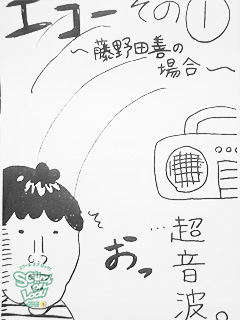 エコーその①
〜藤野田善の
場合〜
おっ
…超音波。